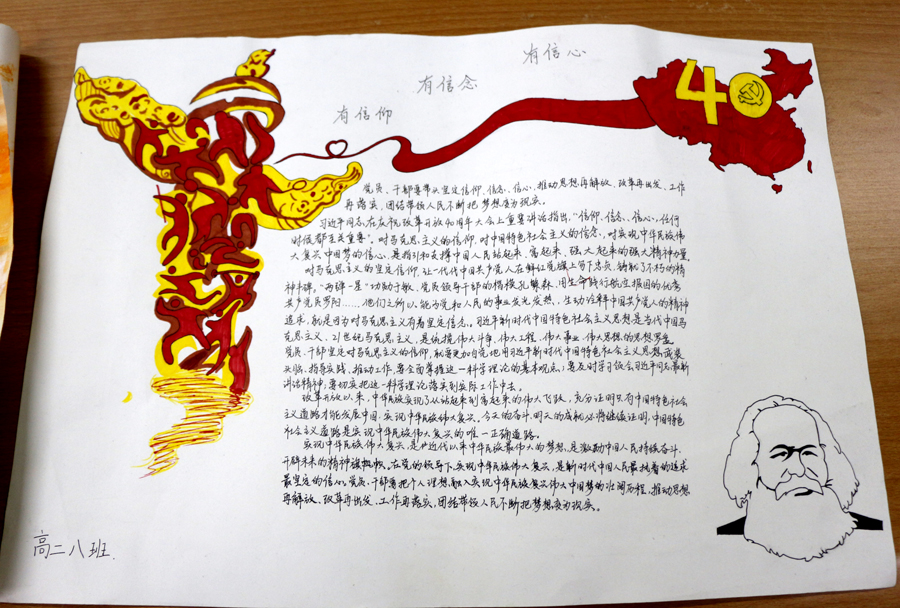 有信心
有信念
有信仰
40
党员、干部要带头坚定信仰、信念、信心，推动思想再解放、改革再出发、工作
再落实，团结带领人民不断把梦想变为现实。
习近平同志在庆祝改革开放40周年大会上重要讲话指出，“信仰、信念、信心，任何
时候都至关重要”。对马克思主义的信仰，对中国特色社会主义的信念，对实现中华民族伟
大复兴中国梦的信心，是指引和支撑中国人民站起来、富起来、强大起来的强大精神力量。
对马克思主义的坚定信仰，让一代代中国共产党人在鲜红党旗上写下忠贞，铸就了不朽的精
神丰碑。“两弹一星”功勋于敏，党员领导干部的楷模孔繁森，用生命践行航空报国的优秀
共产党员罗阳……他们之所以能为党和人民的事业发光发热，生动诠释中国共产党人的精神
追求，就是因为对马克思主义有着坚定信念。习近平新时代中国特色社会主义思想是当代中国马
克思主义，21世纪马克思主义，是统揽伟大斗争、伟大工程、伟大事业、伟大思想的思想罗盘。
党员、干部坚定对马克思主义的信仰，就要更加自觉地用习近平新时代中国特色社会主义思想武装
头脑、指导实践、推动工作，要全面掌握这一科学理论的基本观点；要及时学习领会习近平同志最新
讲话精神，要切实把这一科学理论落实到实际工作中去。
改革开放以来，中华民族实现了从站起来到富起来的伟大飞跃，充分证明只有中国特色社会
主义道路才能发展中国、实现中华民族伟大复兴。今天的奋斗、明天的成就必将继续证明，中国特色
社会主义道路是实现中华民族伟大复兴的唯一正确道路。
实现中华民族伟大复兴，是近代以来中华民族最伟大的梦想，是激励中国人民持续奋斗、
开辟未来的精神旗帜。在党的领导下实现中华民族伟大复兴，是新时代中国人民最执着的追求
最坚定的信心。党员、干部要把个人理想融入实现中华民族复兴伟大中国梦的壮阔历程，推动思想
再解放、改革再出发、工作再落实，团结带领人民不断把梦想变为现实。
高二八班